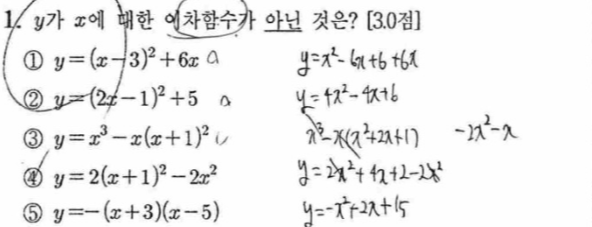 1. y가 x에 대한 이차함수가 아닌 것은? [3.0점]
① y=(x-3)²+6x y=x²-6x+6+6x
② y=(2x-1)²+5 y=4x²-4x+6
③ y=x³-x(x+1)² x³-x(x²+2x+1) -2x²-x
④ y=2(x+1)²-2x² y=2x²+4x+2-2x²
⑤ y=-(x+3)(x-5) y=-x²+2x+15